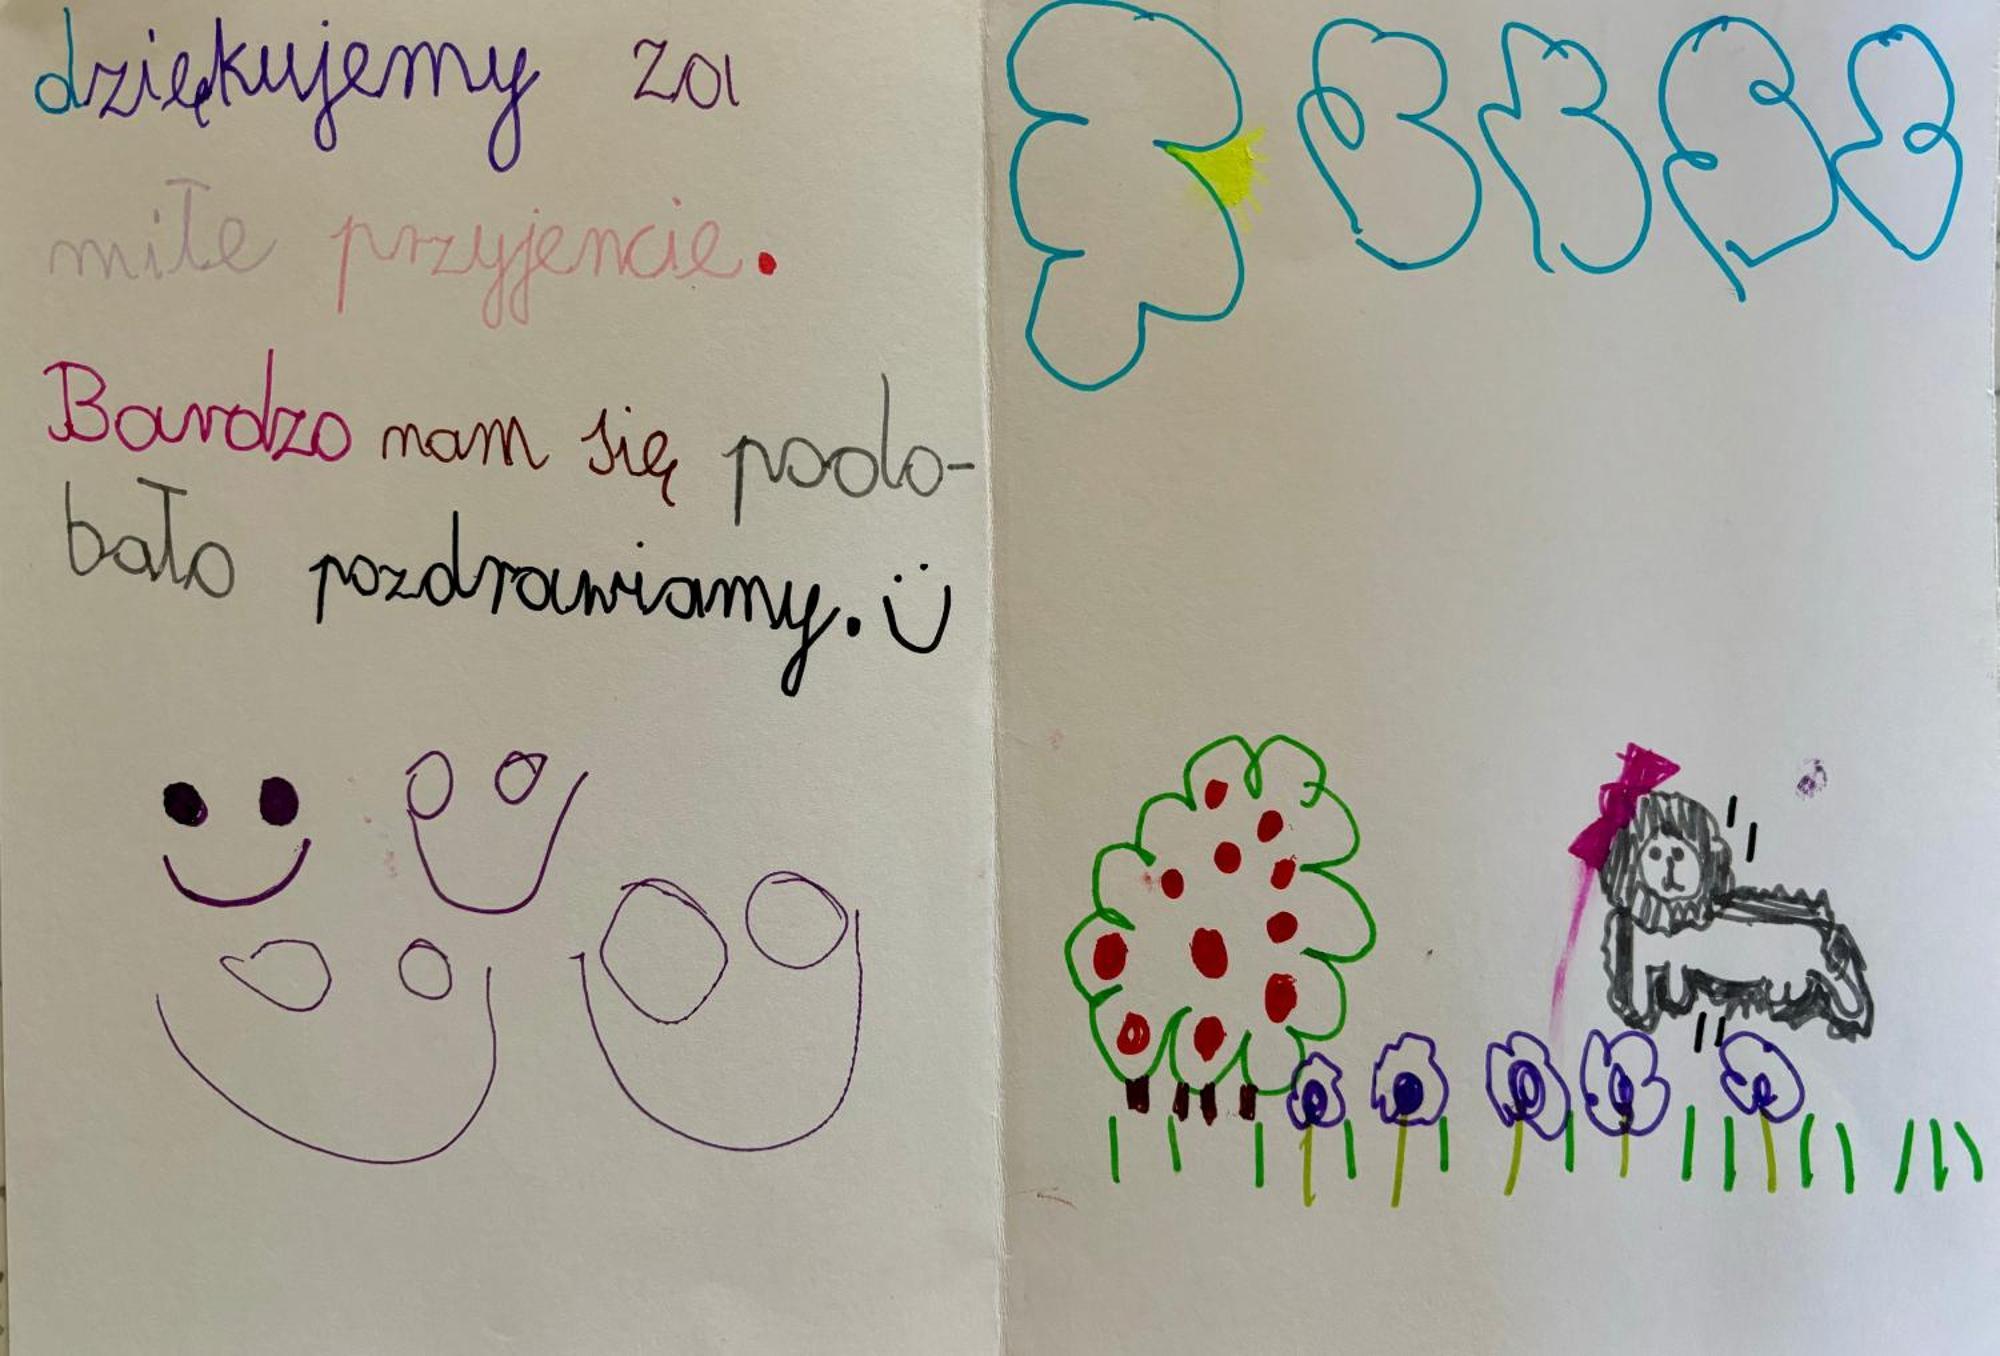 dziękujemy za
miłe przyjencie.
Bardzo nam się podo-
bało pozdrawiamy. :)